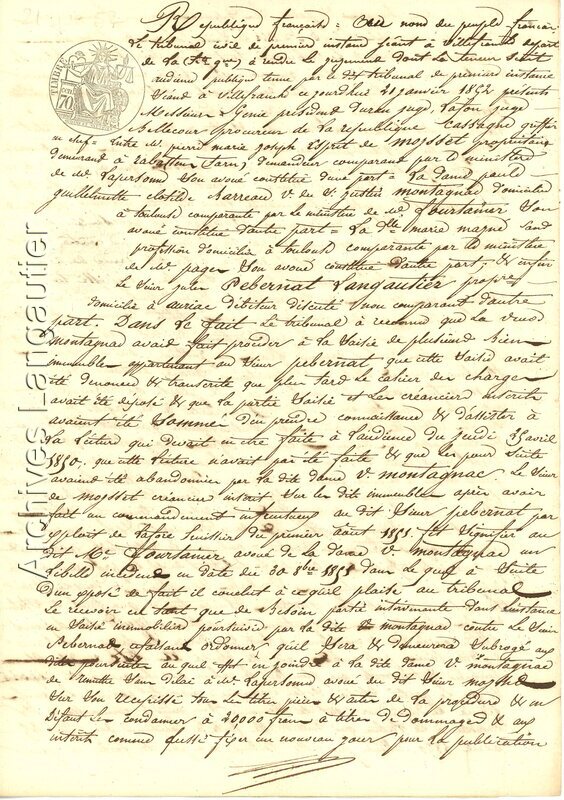 Republique française = au nom du peuple français
Le tribunal civil de premiere instance séant à Villefranche départ
de la h te gne a rendu le jugement dont la teneur suit
audience publique tenue par le dit tribunal de premiere instance
séant à Villefranche ce jourdhui 21 janvier 1852 présents
Messieurs Genie président Duran juge, Lafon juge
Bellecour procureur de la republique Cassagne greffier
en chef = Entre mr pierre marie joseph Esprit de moysset propriétaire
demeurant à rabastens Tarn, demandeur comparant par le ministère
de Me Lapersonne son avoué constitué d'une part = La dame paule
guillemette clotilde Barreau Ve de St justin montagnac domiciliée
à toulouse comparante par le ministère de Me Fourtanier Son
avoué constitué d'autre part = La dlle marie magne sans
profession domiciliée à toulouse comparante par le ministère
de Me pages Son avoué constitué d'autre part; & enfin
le Sieur jules Pebernat Langautier propre
domicilié à auriac débiteur discuté non comparant d'autre
part. Dans le fait le tribunal a reconnu que la veuve
montagnac avait fait procéder à la Saisie de plusieurs biens
immeubles appartenant au Sieur pebernat que cette Saisie avait
été dénoncée & transcrite que plus tard le cahier des charges
avait été déposé & que la partie Saisie et les créanciers inscrits
avaient été Sommés d'en prendre connaissance & d'assister à
la lecture qui devait en être faite à l'audience du jeudi 25 avril
1850. que cette lecture n'avait pas été faite & que les poursuites
avaient été abandonnées par la dite dame Ve montagnac. Le Sieur
de moysset créancier inscrit Sur les dits immeubles après avoir
fait un commandement infructueux au dit Sieur pebernat par
exploit de Lafore huissier du premier aout 1851. fit signifier au
dit Me Fourtanier avoué de la dame Ve montagnac un
libellé incident en date du 30 8bre 1851 dans lequel à Suite
d'un exposé de fait il conclut à ce qu'il plaise au tribunal
le recevoir en tant que de Besoin partie intervenante dans l'instance
en Saisie immobilière poursuivie par la dite Ve montagnac contre le Sieur
Pebernat, ce faisant ordonner qu'il Sera & demeurera Subrogé aux
dites poursuites à quel effet enjoindre à la dite dame Ve montagnac
de remettre Sans délai à Me Lapersonne avoué du dit Sieur moysset
Sur Son recepissé tous les titres pieces & actes de la procédure & en
défaut les condamner à 20000 francs à titre de Dommages & aux
intérêts comme fussé fixer un nouveau jour pour la publication
TIMBRE
70
Archives Langautier